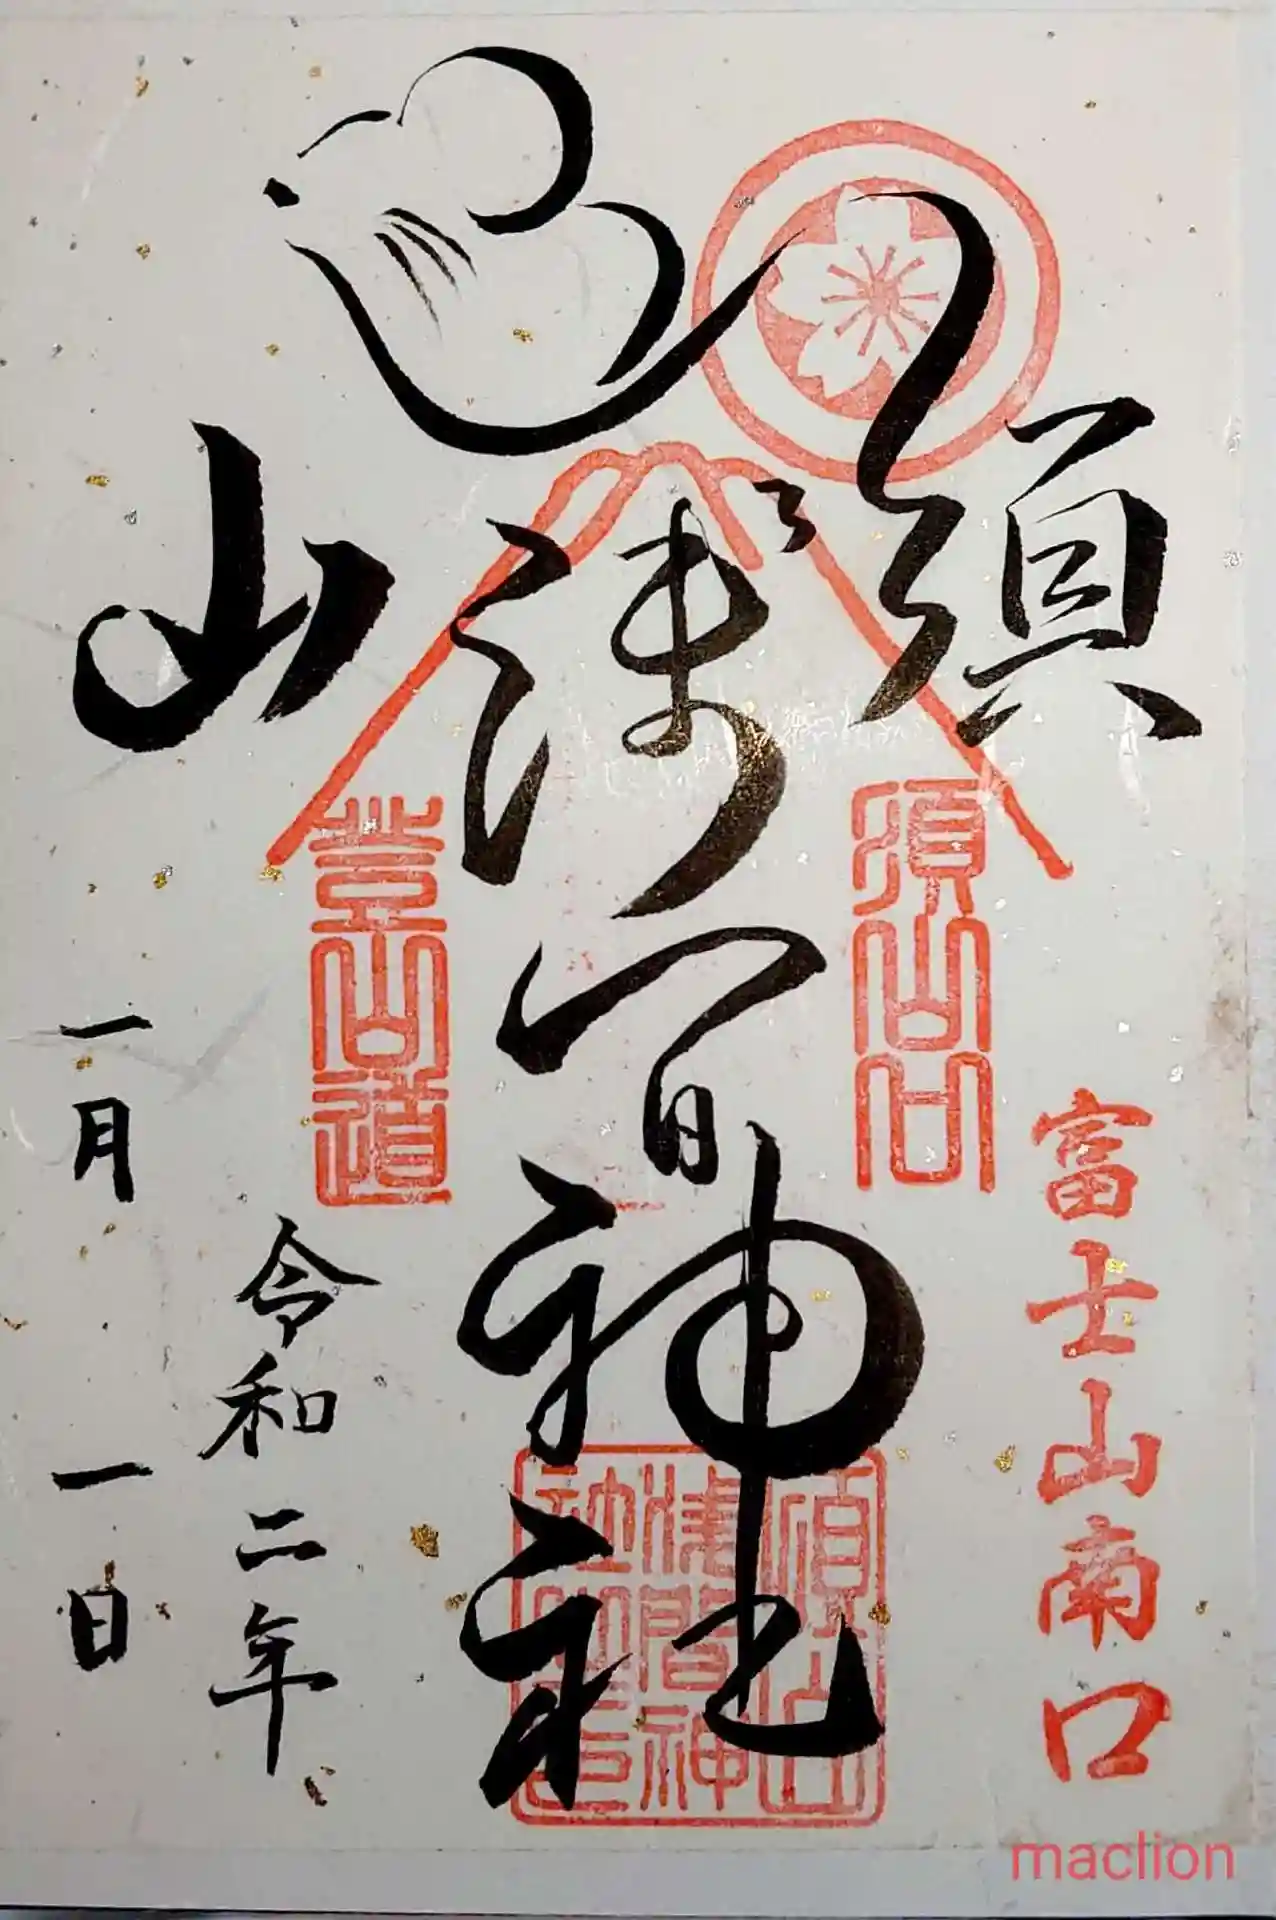 富士山南口
須山
浅間神社
須山口
登山道
令和二年
一月一日
maclion